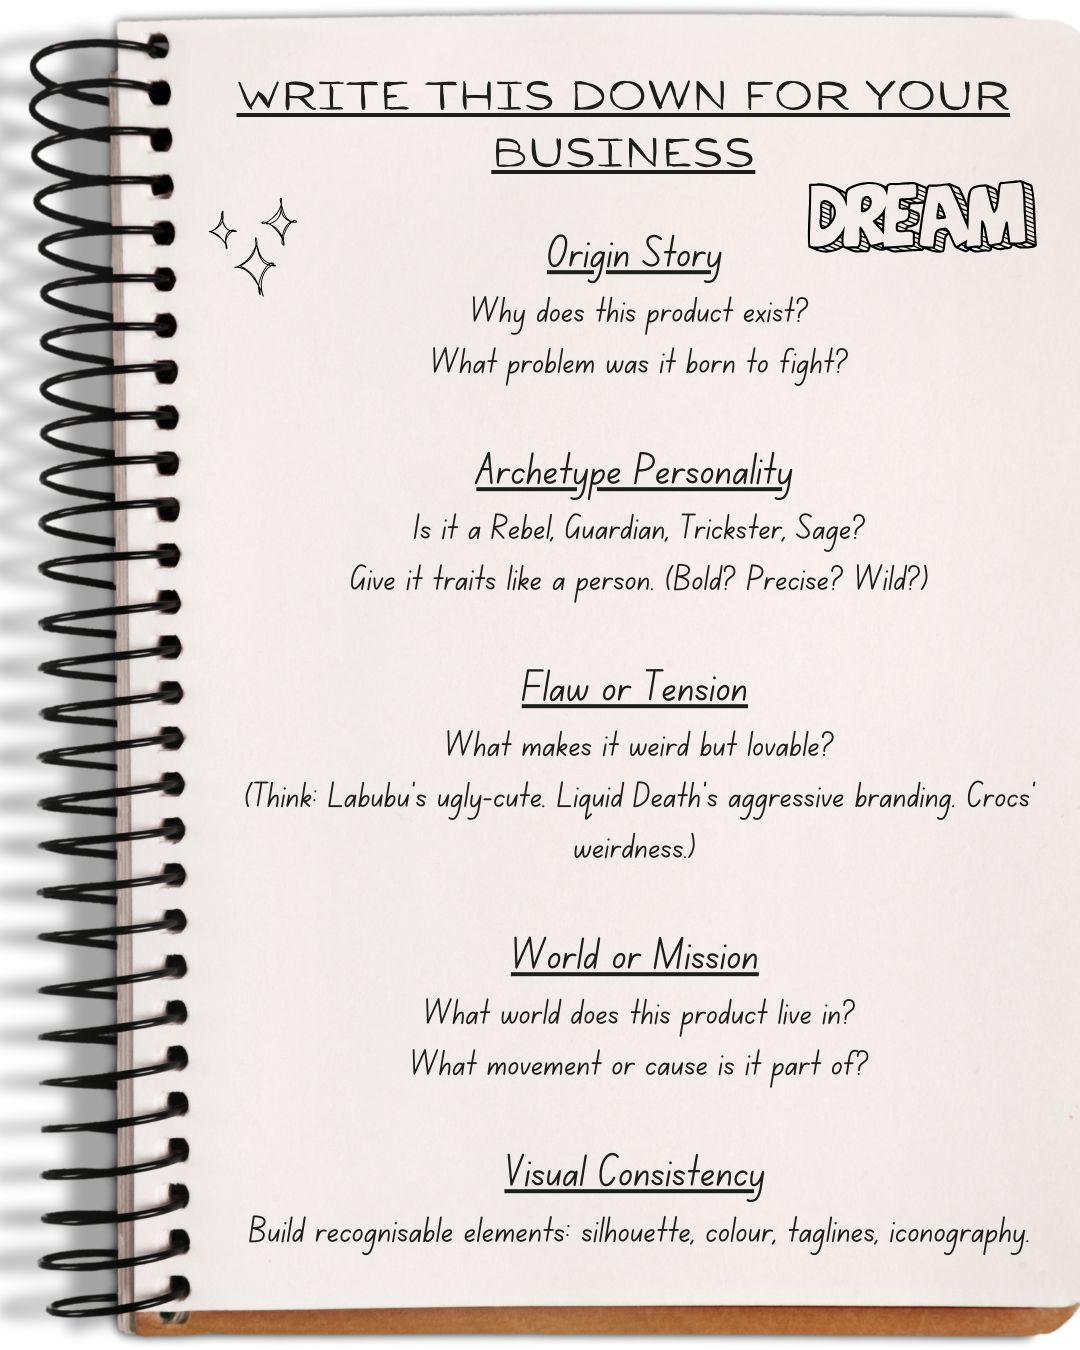 WRITE THIS DOWN FOR YOUR
BUSINESS
DREAM
Origin Story
Why does this product exist?
What problem was it born to fight?
Archetype Personality
Is it a Rebel, Guardian, Trickster, Sage?
Give it traits like a person. (Bold? Precise? Wild?)
Flaw or Tension
What makes it weird but lovable?
(Think: Labubu's ugly-cute. Liquid Death's aggressive branding. Crocs'
weirdness.)
World or Mission
What world does this product live in?
What movement or cause is it part of?
Visual Consistency
Build recognisable elements: silhouette, colour, taglines, iconography.